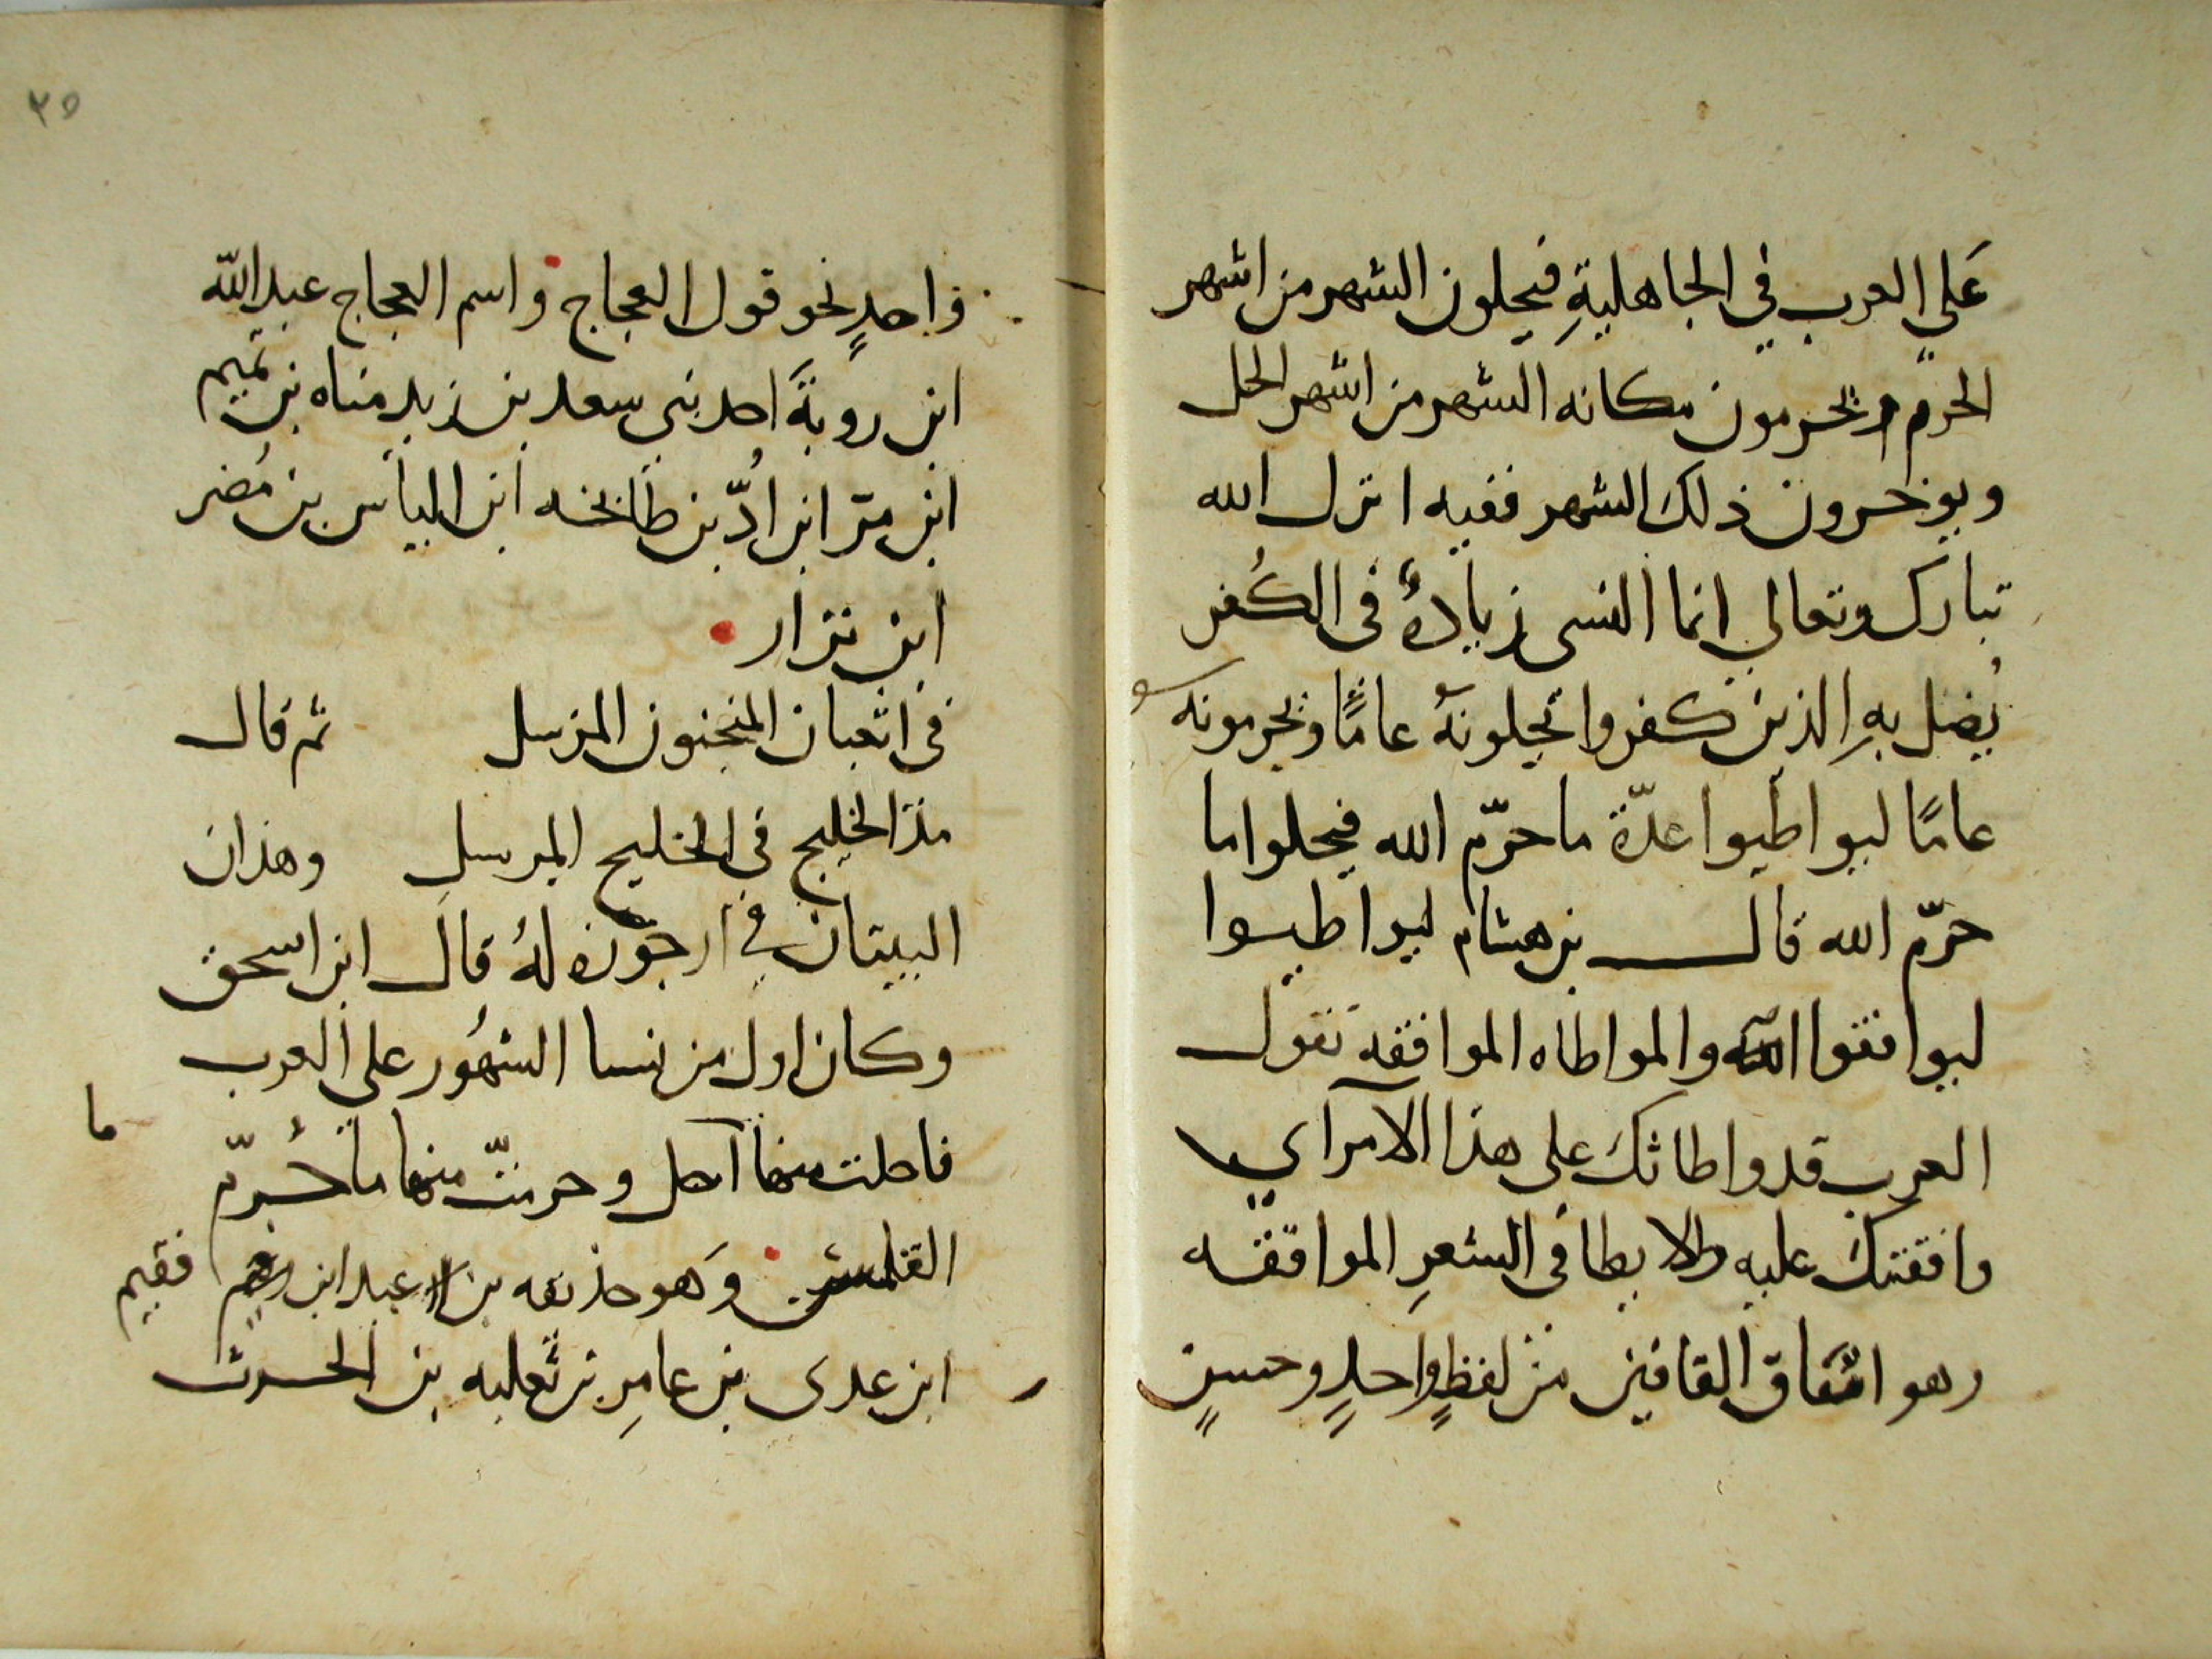 عَلي العرب في الجاهليةِ فيحلون الشهر من اشهر
الحرم ويحرمون مكانه الشهر من اشهر الحل
ويوخرون ذلك الشهر ففيه انزل الله
تبارك وتعالي انما النسى زيادةٌ فى الكُفر
يُضل بهِ الذين كفروا يحلونهُ عامًا ويحرمونه
عامًا ليواطيوا عدّة ما حرّم الله فيحلوا ما
حرّم الله قال بن هشام ليواطيوا
ليوافقوا والمواطاه الموافقه تقول
العرب قد واطاتك على هذا الامر اي
وافقتك عليه والايطا فى الشعرِ الموافقه
وهو اتفاق القافيتين من لفظٍ واحدٍ وحسنٍ
٣٥
واحدٍ نحو قول العجاج واسم العجاج عبد الله
ابن روبةَ احد بنى سعد بن زيد مناه بن تميم
ابن مر ابن اُدّ بن طابخه ابن الياس بن مُضر
ابن نزار
فى اثعبان المنجنون المرسل ثم قال
مدّ الخليج فى الخليج المرسل وهذان
البيتان في ارجوزه لهُ قال ابن اسحق
وكان اول من نسا الشهُور على العرب
فاحلت منها ما احل وحرمتّ منها ما حُرّم
القلمس وَهو حذيفه بن عبد ابن فقيم
ابن عدى بن عامِر بن ثعلبه بن الحرث